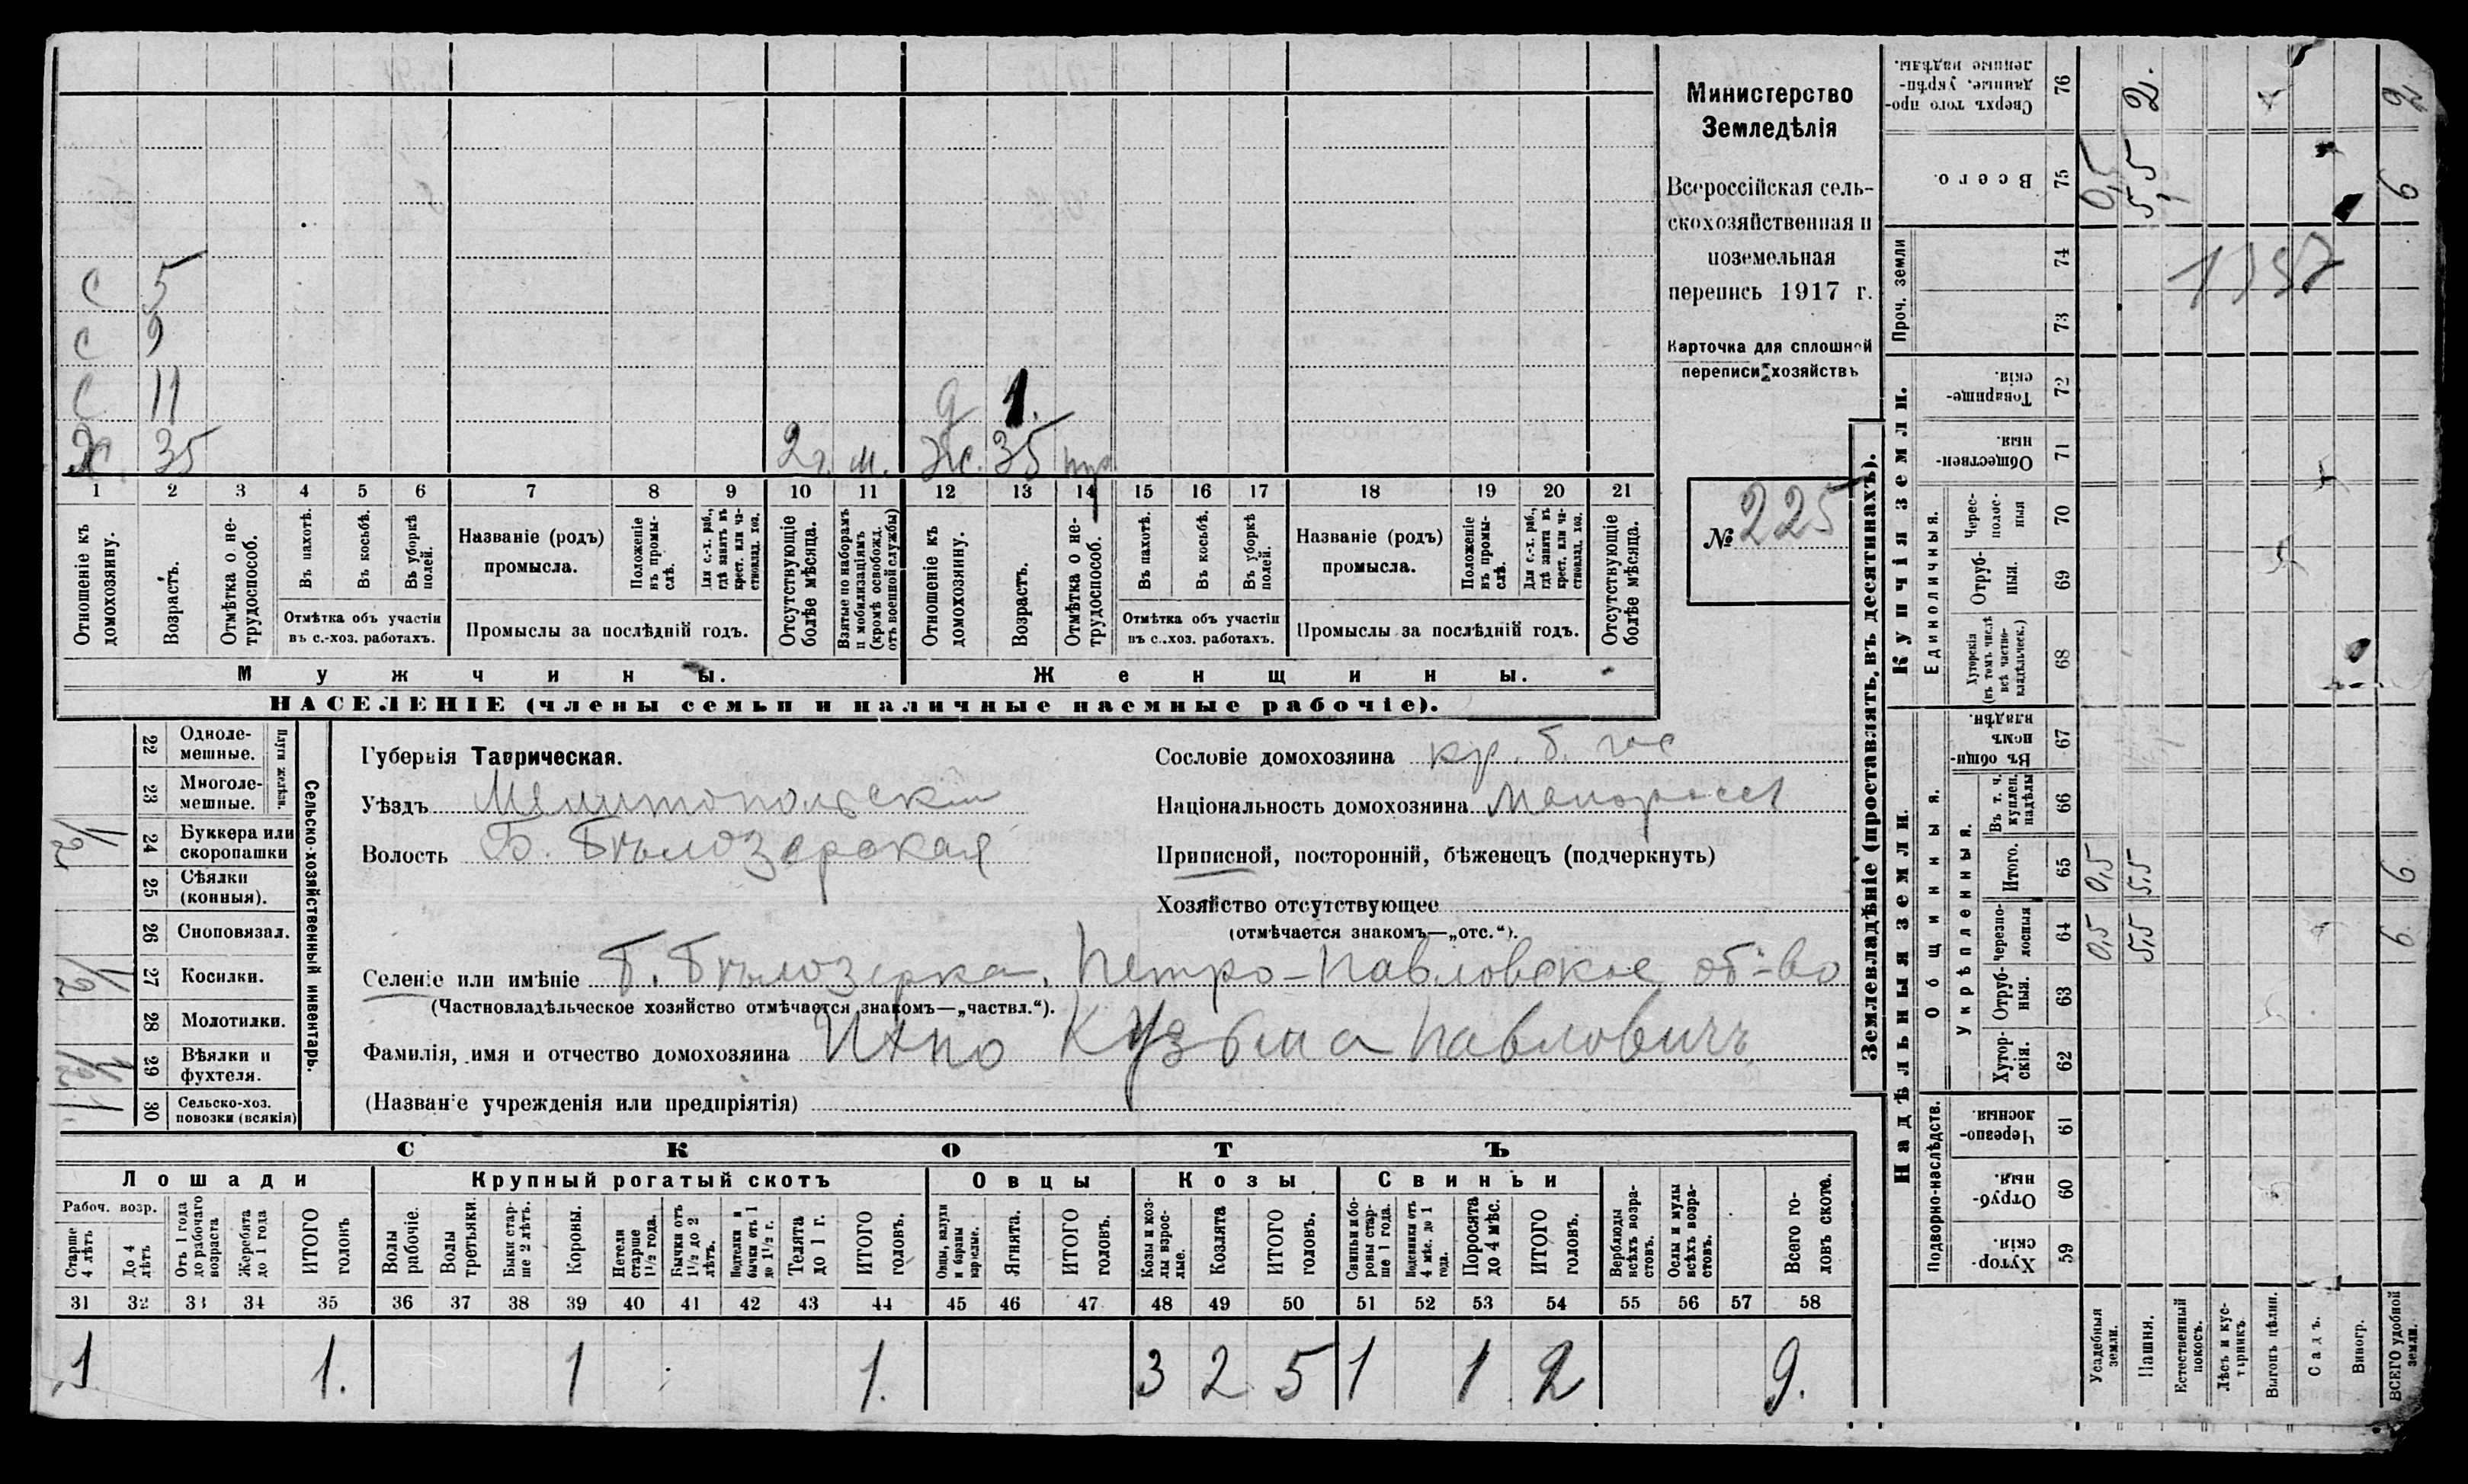 Министерство
Земледѣлія
Всероссійская сель-
скохозяйственная и
поземельная
перепись 1917 г.
Карточка для сплошной
переписи хозяйствъ
№ 225
с 5
с 9
с 11
х 35 2 г. м. ж. 35
д 1.
1 2 3 4 5 6 7 8 9 10 11 12 13 14 15 16 17 18 19 20 21
Отношеніе къ домохозяину.
Возрастъ.
Отмѣтка о не-трудоспособ.
Въ пахотѣ.
Въ косьбѣ.
Въ уборкѣ полей.
Отмѣтка объ участіи
въ с.-хоз. работахъ.
Названіе (родъ)
промысла.
Положеніе въ промы-слѣ.
Для с.-х. раб., гдѣ занятъ въ крест. или ча-стновлад. хоз.
Промыслы за послѣдній годъ.
Отсутствующіе болѣе мѣсяца.
Взятые по наборамъ и мобилизаціямъ (кромѣ освобожд. отъ военной службы)
Отношеніе къ домохозяину.
Возрастъ.
Отмѣтка о не-трудоспособ.
Въ пахотѣ.
Въ косьбѣ.
Въ уборкѣ полей.
Отмѣтка объ участіи
въ с.-хоз. работахъ.
Названіе (родъ)
промысла.
Положеніе въ промы-слѣ.
Для с.-х. раб., гдѣ занята въ крест. или ча-стновлад. хоз.
Промыслы за послѣдній годъ.
Отсутствующіе болѣе мѣсяца.
Мужчины. Женщины.
НАСЕЛЕНІЕ (члены семьи и наличные наемные рабочіе).
Сельско-хозяйственный инвентарь.
Плуги желѣзн.
22 Одноле-мешные.
23 Многоле-мешные.
24 Буккера или скоропашки 1/2
25 Сѣялки (конныя).
26 Сноповязал.
27 Косилки. 1/2
28 Молотилки.
29 Вѣялки и фухтеля. 1/2
30 Сельско-хоз. повозки (всякія) 1
Губернія Таврическая.
Уѣздъ Мелитопольскій
Волость Б. Бѣлозерская
Сословіе домохозяина кр. б. гос
Національность домохозяина Малоросс
Приписной, посторонній, бѣженецъ (подчеркнуть)
Хозяйство отсутствующее
(отмѣчается знакомъ—„отс.“).
Селеніе или имѣніе Б. Бѣлозерка. Петро-Павловское об-во
(Частновладѣльческое хозяйство отмѣчается знакомъ—„частвл.“).
Фамилія, имя и отчество домохозяина Ихно Кузьма Павловичъ
(Названіе учрежденія или предпріятія)
СКОТЪ
Лошади Крупный рогатый скотъ Овцы Козы Свиньи
Рабоч. возр.
Старше 4 лѣтъ
До 4 лѣтъ
Отъ 1 года до рабочаго возраста
Жеребята до 1 года
ИТОГО головъ
Волы рабочіе.
Волы третьяки.
Быки стар-ше 2 лѣтъ.
Коровы.
Нетели старше 1½ года.
Бычки отъ 1½ до 2 лѣтъ.
Подтелки и бычки отъ 1 до 1½ г.
Телята до 1 г.
ИТОГО головъ.
Овцы, валухи и бараны взрослые.
Ягнята.
ИТОГО головъ.
Козы и коз-лы взрос-лые.
Козлята
ИТОГО головъ.
Свиньи и бо-ровы стар-ше 1 года.
Подсвинки отъ 4 мѣс. до 1 года.
Поросята до 4 мѣс.
ИТОГО головъ.
Верблюды всѣхъ возра-стовъ.
Ослы и мулы всѣхъ возра-стовъ.
Всего го-ловъ скота.
31 32 33 34 35 36 37 38 39 40 41 42 43 44 45 46 47 48 49 50 51 52 53 54 55 56 57 58
1 1. 1 1. 3 2 5 1 1 2 9.
Землевладѣніе (проставлять въ десятинахъ).
Надѣльныя земли.
Купчія земли.
Проч. земли
Подворно-наслѣдств.
Общинныя.
Укрѣпленныя.
Единоличныя.
Хутор-скія. 59
Отруб-ныя. 60
Черезпо-лосныя 61
Хутор-скія. 62
Отруб-ныя. 63
Черезпо-лосныя 64
Итого. 65
Въ т. ч. куплен. надѣлы 66
Въ общи-номъ владѣн. 67
Хуторскія (въ томъ числѣ всѣ частно-владѣльческ.) 68
Отруб-ныя. 69
Черес-полос-ныя 70
Обществен-ныя 71
Товарище-скія. 72
73
74
Всего. 75
Сверхъ того про-данные, укрѣп-ленные надѣлы. 76
Усадебныя земли. 0,5 0,5 0,5
Пашня. 5,5 5,5 5,5 2.
Естественный покосъ.
Лѣсъ и кус-тарникъ.
Выгонъ цѣлин.
Садъ.
Виногр.
ВСЕГО удобной земли. 6 6 6 2